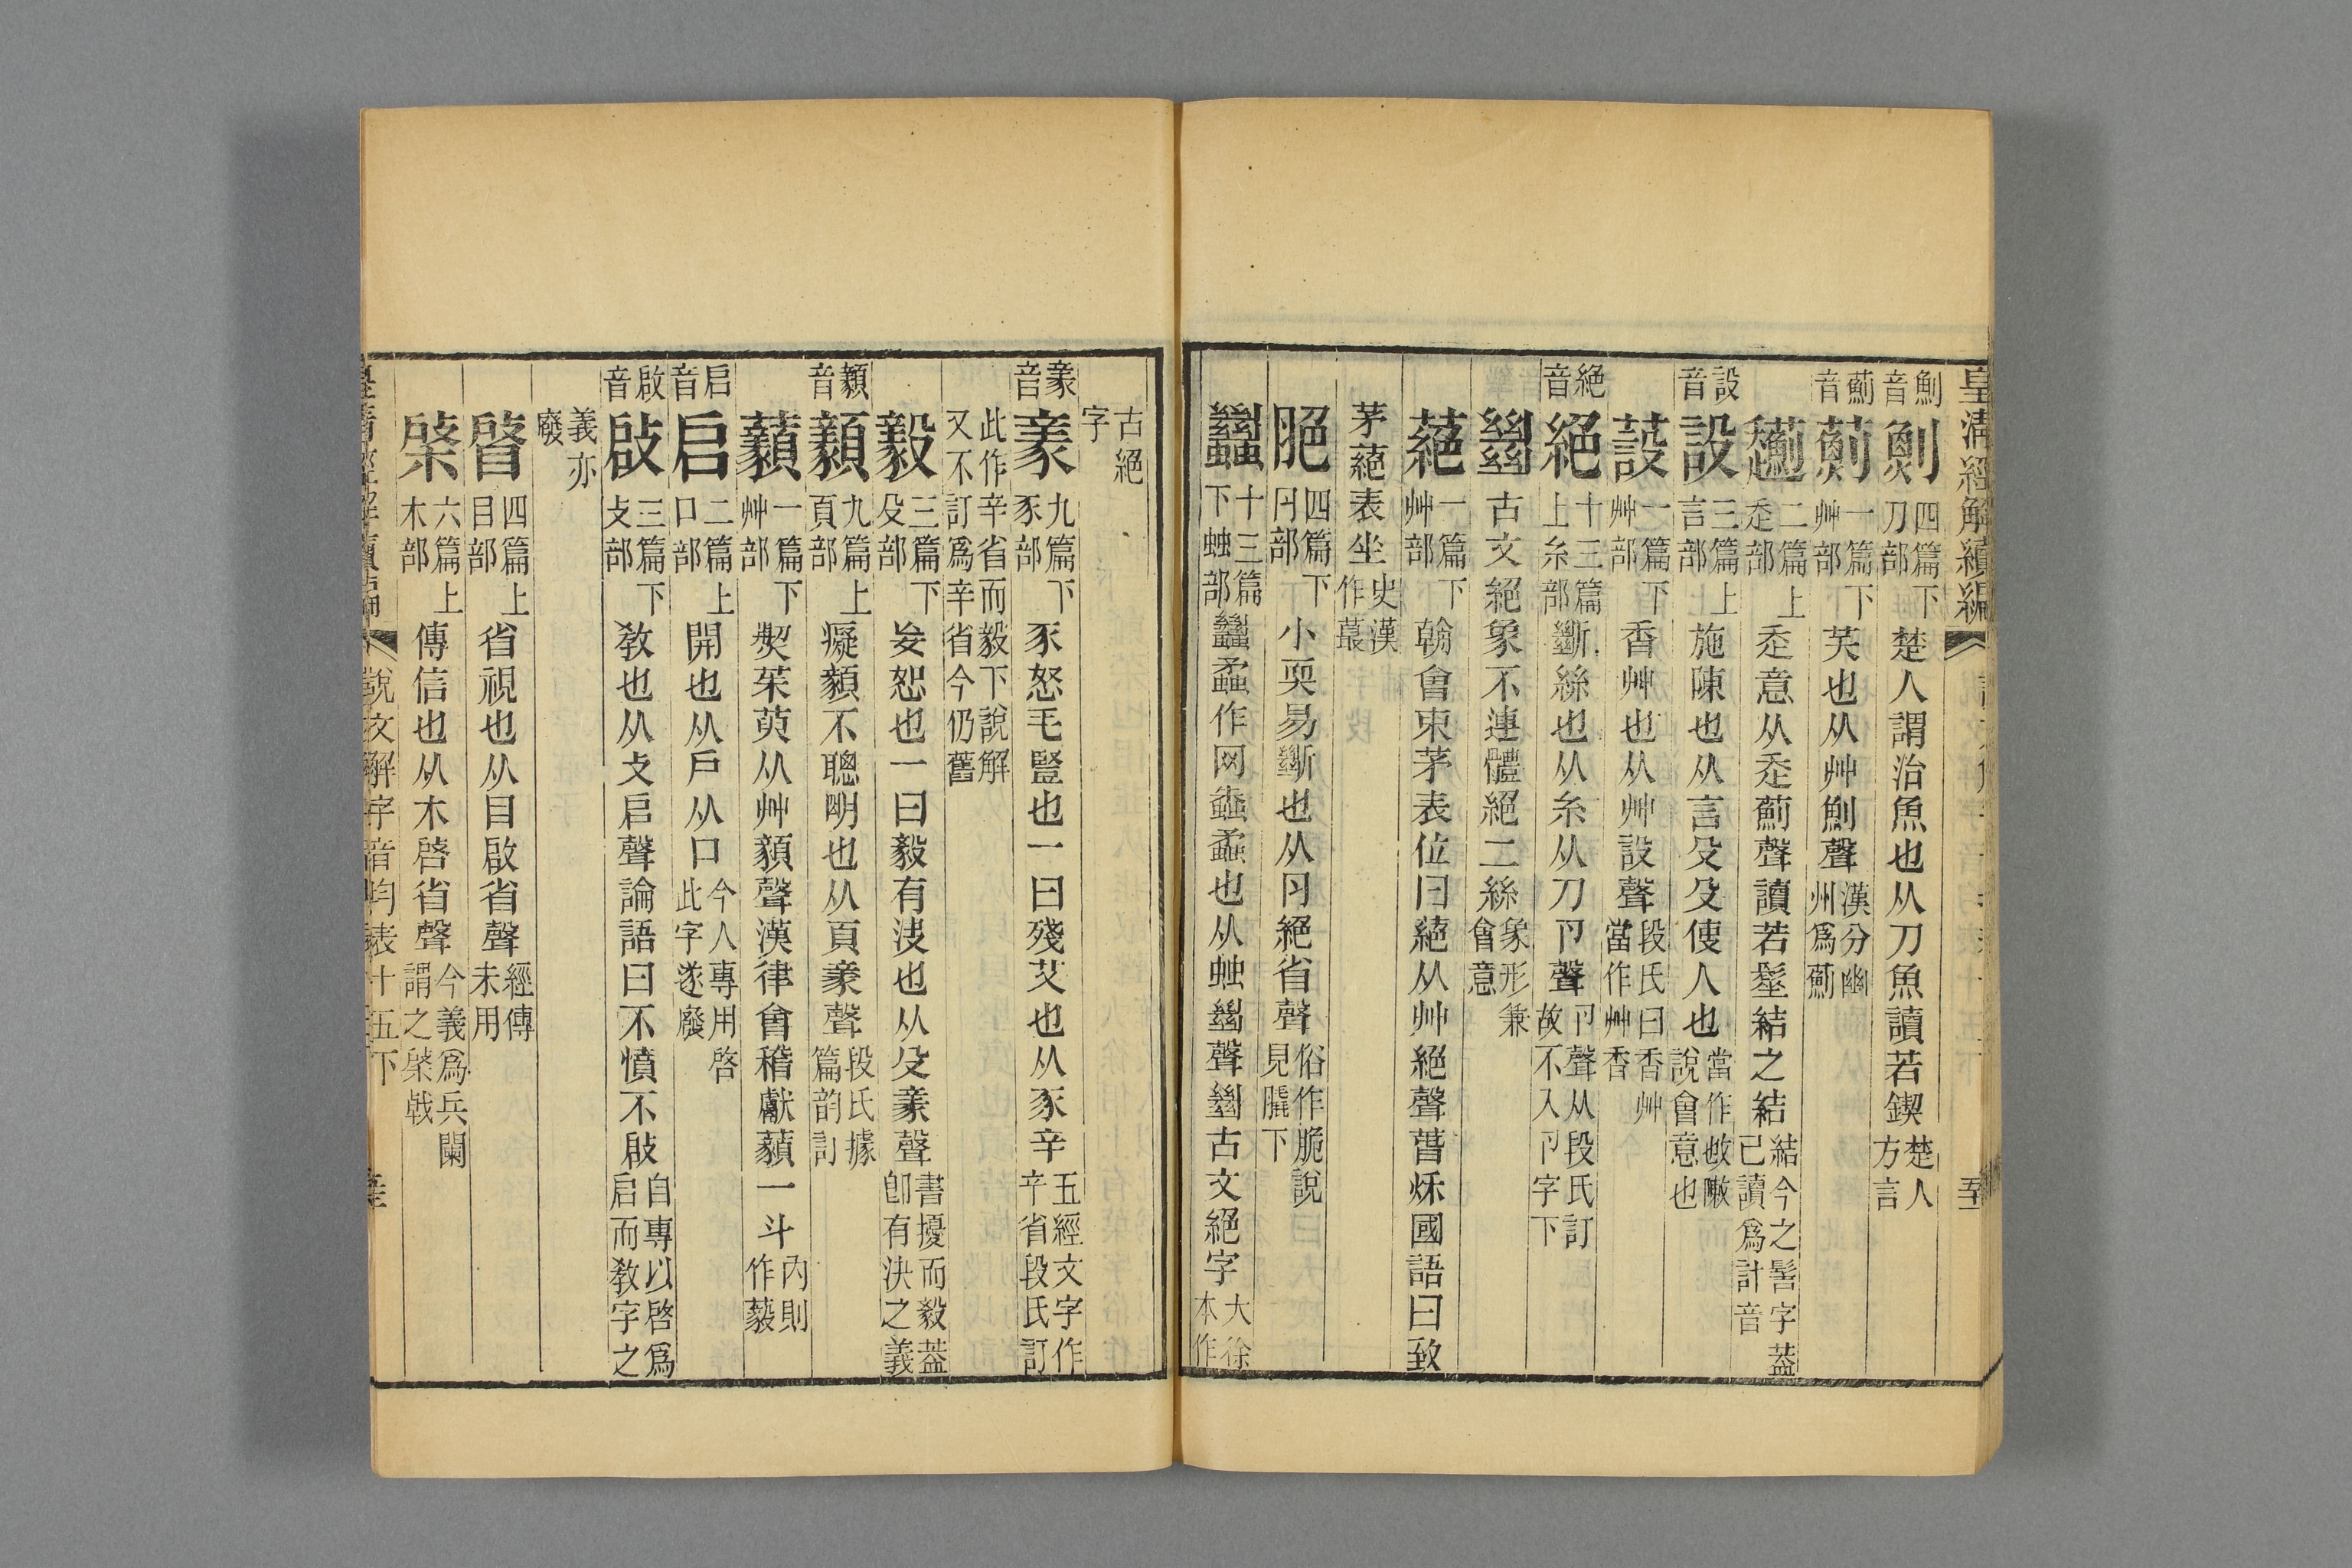 皇淸經解續編
魝音 魝 四篇下刀部 楚人謂治魚也从刀魚讀若鍥 楚人方言
薊音 薊 一篇下艸部 芺也从艸魝聲 漢分幽州爲薊
趫 二篇上
設音 設 三篇上言部 施陳也从言殳殳使人也 當作㪇㪇說會意也
蔎 一篇下艸部 香艸也从艸設聲 段氏曰香艸當作艸香
絕音 絕 十三篇上糸部 斷絲也从糸从刀卪聲 卪聲从段氏訂故不入卪字下
𢇍 古文絕象不連體絕二絲 象形兼會意
蕝 一篇下艸部 翰會束茅表位曰蕝从艸絕聲春秋國語曰致
茅蕝表坐 史漢作蕞
脃 四篇下肉部 小耎易斷也从肉絕省聲 俗作脆說見膬下
蠿 十三篇下䖵部 蠿蟊作网蛛蟊也从䖵𢇍聲𢇍古文絕字 大徐本作
古絕字
豙音 豙 九篇下豕部 豕怒毛豎也一曰殘艾也从豕辛 五經文字作辛省段氏訂
此作辛省而毅下說解又不訂爲辛省今仍舊
毅 三篇下殳部 妄恕也一曰毅有決也从殳豙聲 書擾而毅葢卽有決之義
顡音 顡 九篇上頁部 癡顡不聰明也从頁豙聲 段氏據篇韵訂
藙 一篇下艸部 煎茱萸从艸顡聲漢律會稽獻藙一斗 內則作藙
启音 启 二篇上口部 開也从戶从口 今人專用啓此字遂廢
啟音 啟 三篇下攴部 敎也从攴启聲論語曰不憤不啟 自專以啓爲启而敎字之
義亦廢
䁈 四篇上目部 省視也从目啟省聲 經傳未用
棨 六篇上木部 傳信也从木啓省聲 今義爲兵闌謂之棨戟
說文解字音均表十五下